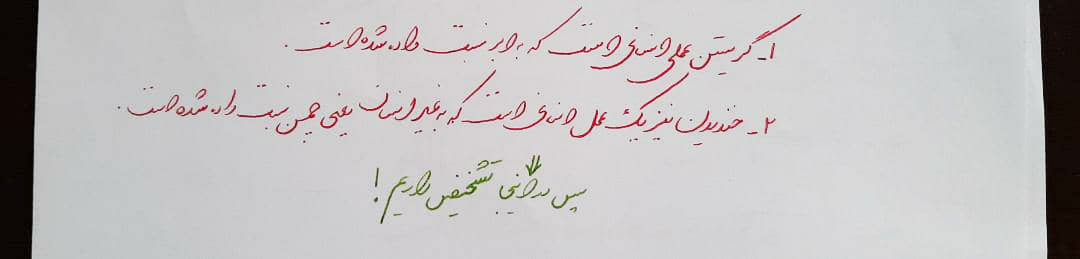 ۱- گریستن عملی انسانی است که به ابر نسبت داده شده است.
۲- خندیدن نیز یک عمل انسانی است که به غیر انسان یعنی چمن نسبت داده شده است.
⇓
پس در اینجا تشخیص داریم!